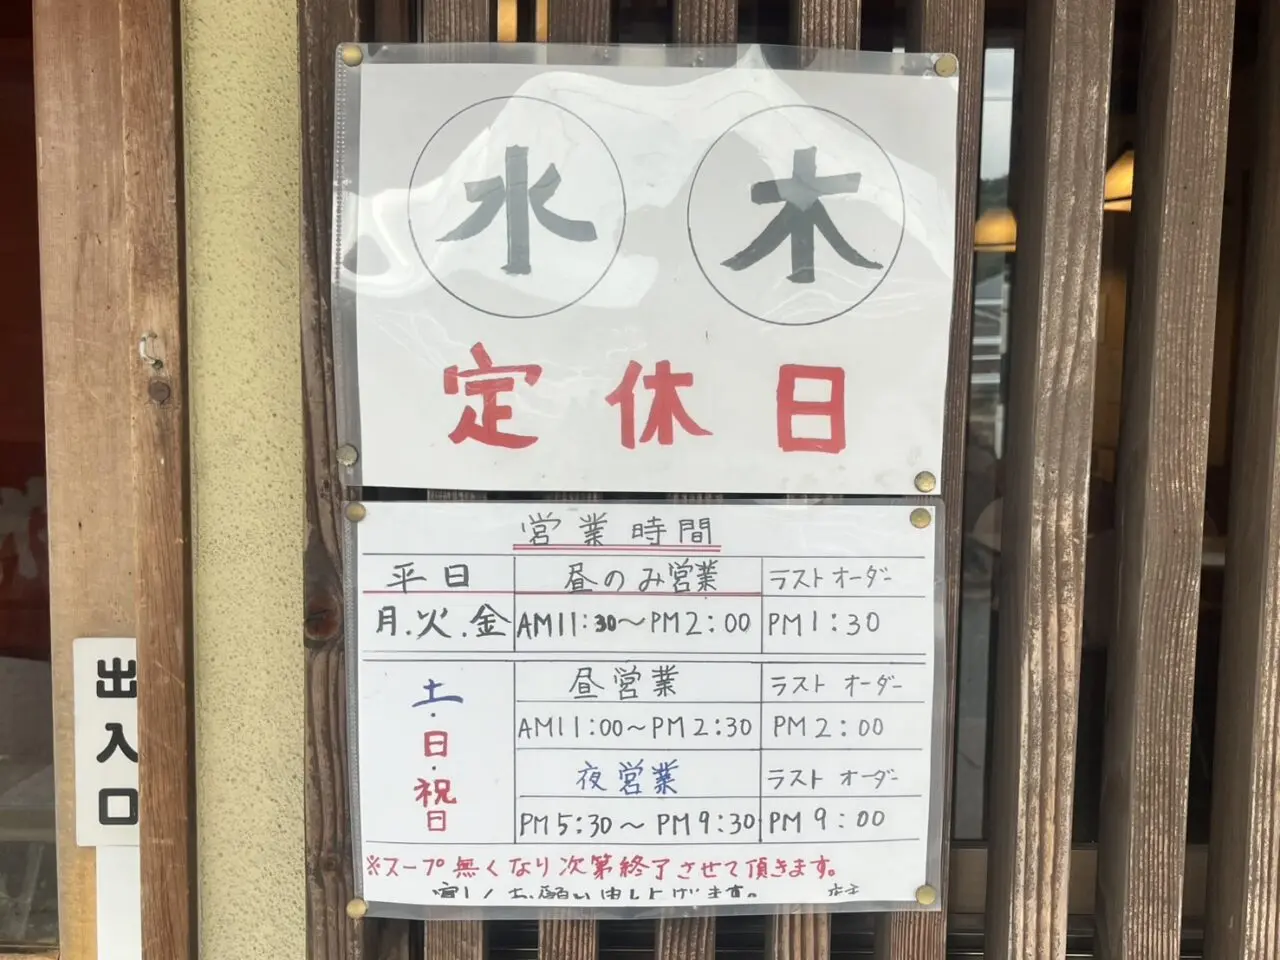 水 木
定休日
営業時間
平日 昼のみ営業 ラストオーダー
月.火.金 AM11:30〜PM2:00 PM1:30
土・日・祝日
昼営業 ラストオーダー
AM11:00〜PM2:30 PM2:00
夜営業 ラストオーダー
PM5:30〜PM9:30 PM9:00
※スープ無くなり次第終了させて頂きます。
宜しくお願い申し上げます。 店主
出入口